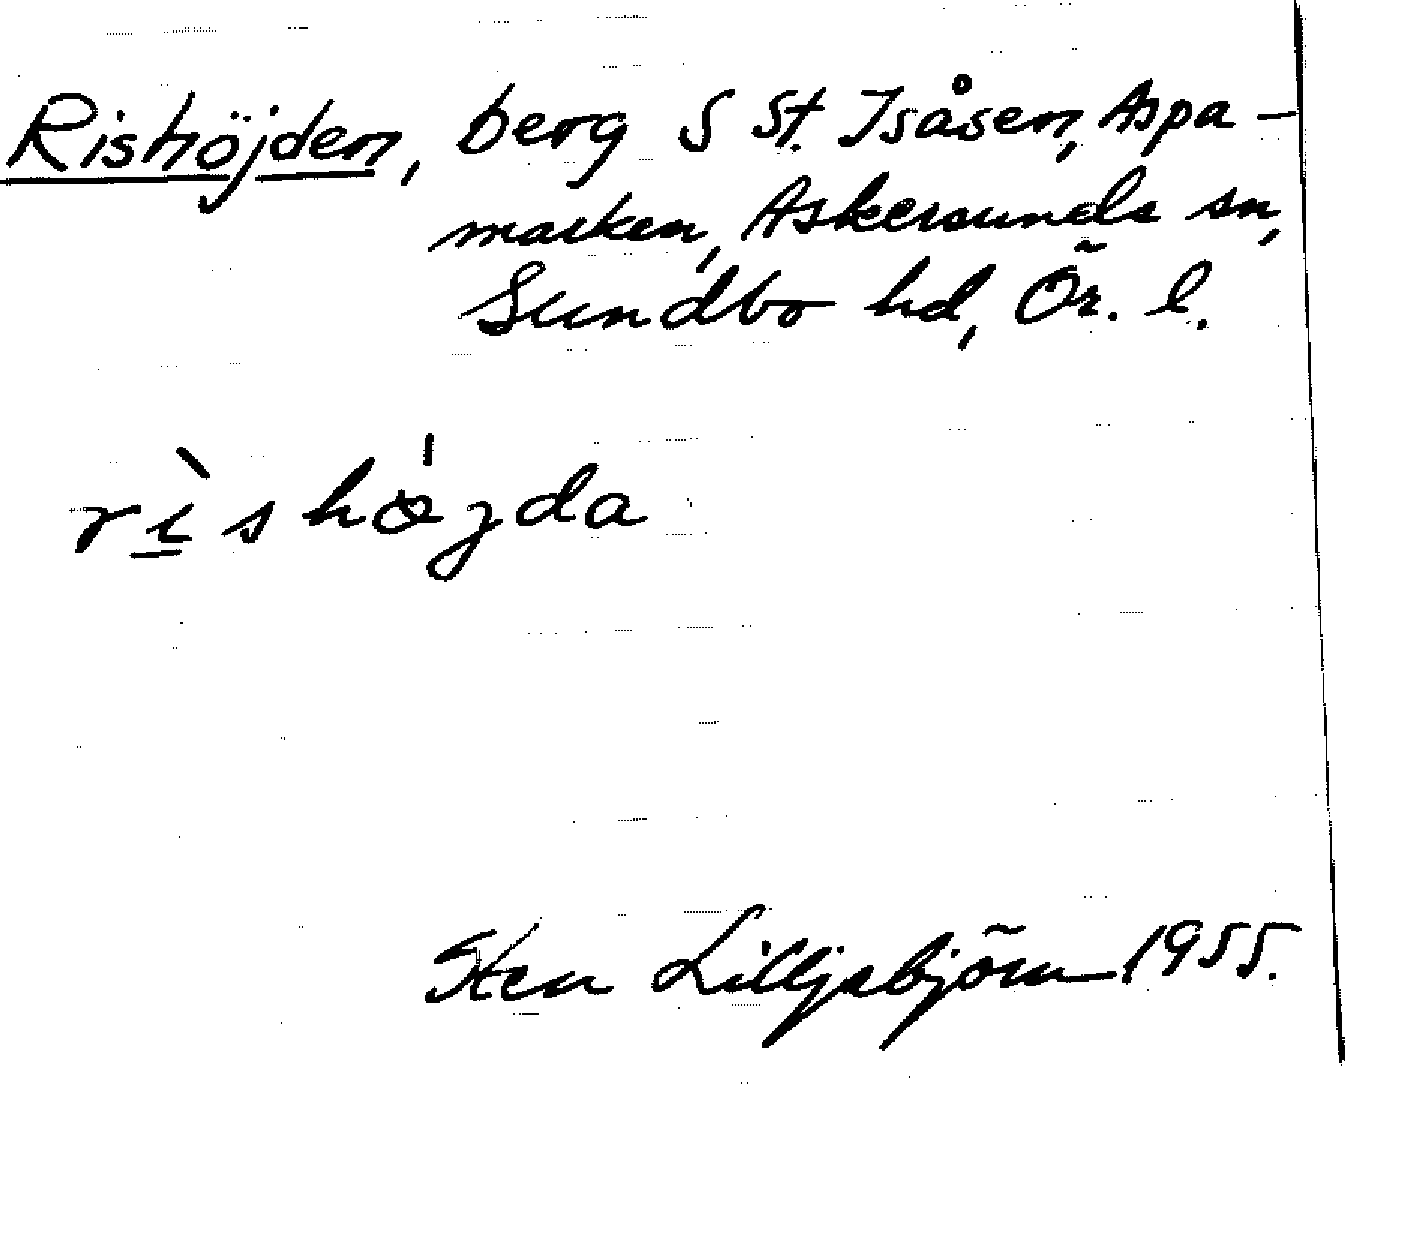 Rishöjden, berg S St. Isåsen, Aspa-
marken, Askersunds sn,
Sundbo hd, Ör. l.
rı̲̀shø̍jda
Sten Lilljebjörn 1955.